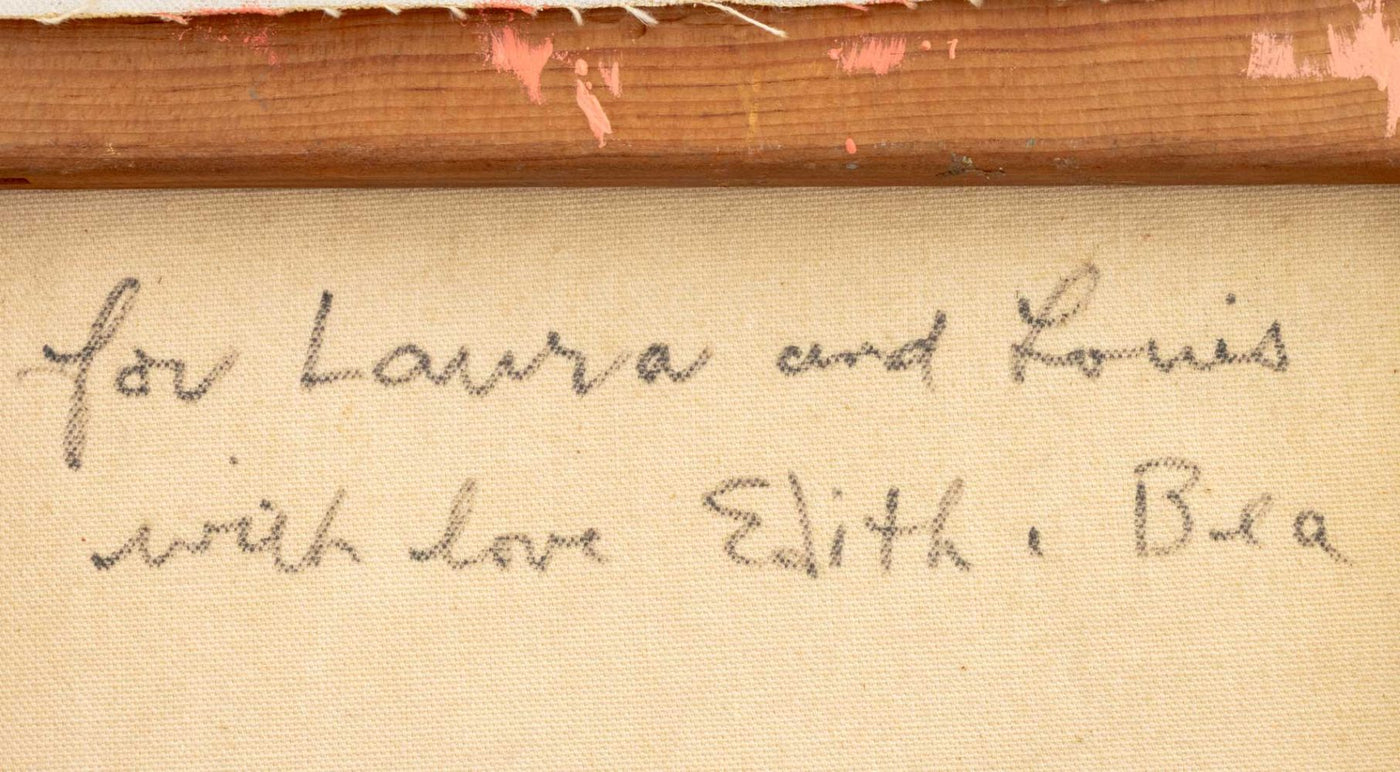 for Laura and Louis
with love Edith . Bea